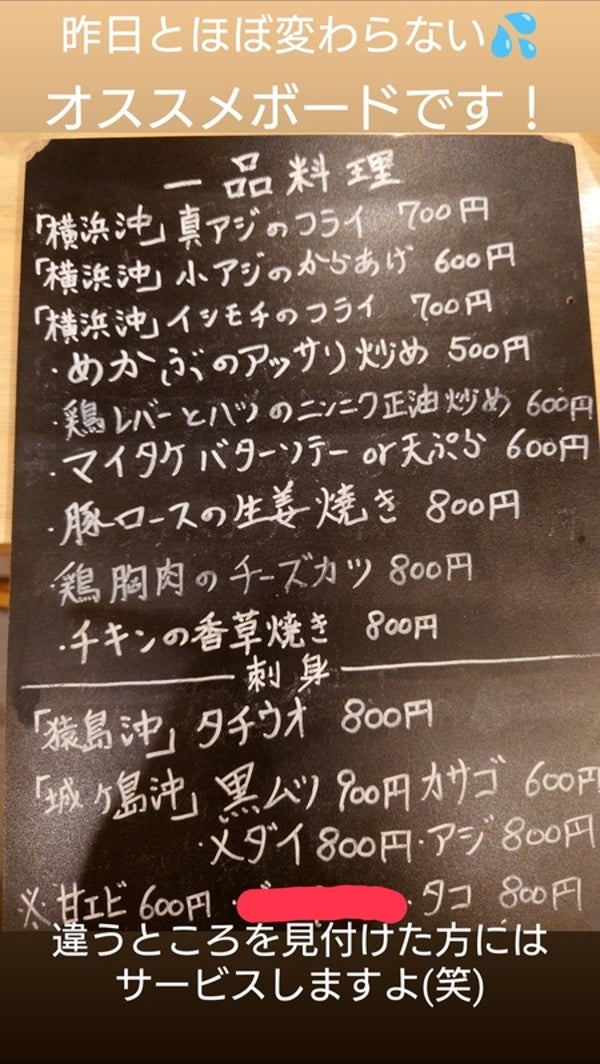 昨日とほぼ変わらない💦
オススメボードです！
一品料理
「横浜沖」真アジのフライ 700円
「横浜沖」小アジのからあげ 600円
「横浜沖」イシモチのフライ 700円
・めかぶのアッサリ炒め 500円
・鶏レバーとハツのニンニク正油炒め 600円
・マイタケバターソテー or天ぷら 600円
・豚ロースの生姜焼き 800円
・鶏胸肉のチーズカツ 800円
・チキンの香草焼き 800円
刺身
「猿島沖」タチウオ 800円
「城ヶ島沖」黒ムツ 900円 カサゴ 600円
・メダイ 800円・アジ 800円
※甘エビ 600円 ・タコ 800円
違うところを見付けた方には
サービスしますよ(笑)